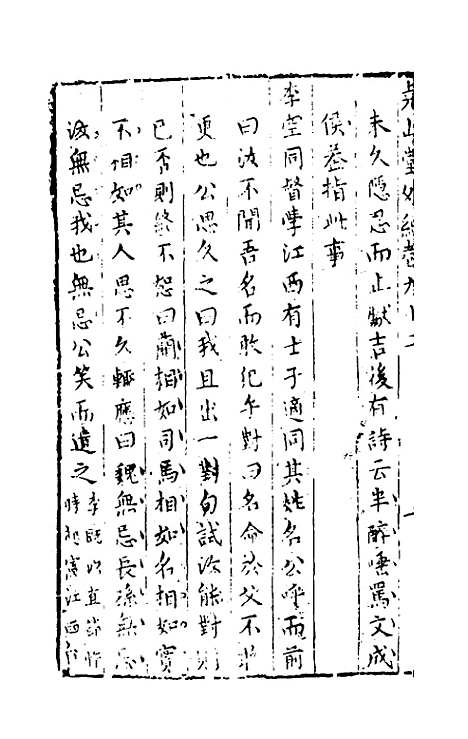 堯山堂外紀卷九十
未久隱忍而止獻吉後有詩云半醉唾罵文成
侯蓋指此事
李空同督學江西有士子適同其姓名公呼而前
曰汝不聞吾名而敢犯乎對曰名命於父不
更也公思久之曰我且出一對句試汝能對
已否則終不恕曰藺相如司馬相如名相如實
不相如其人思不久輒應曰魏無忌長孫無忌
汝無忌我也無忌公笑而遣之李既以直節
時起憲江西